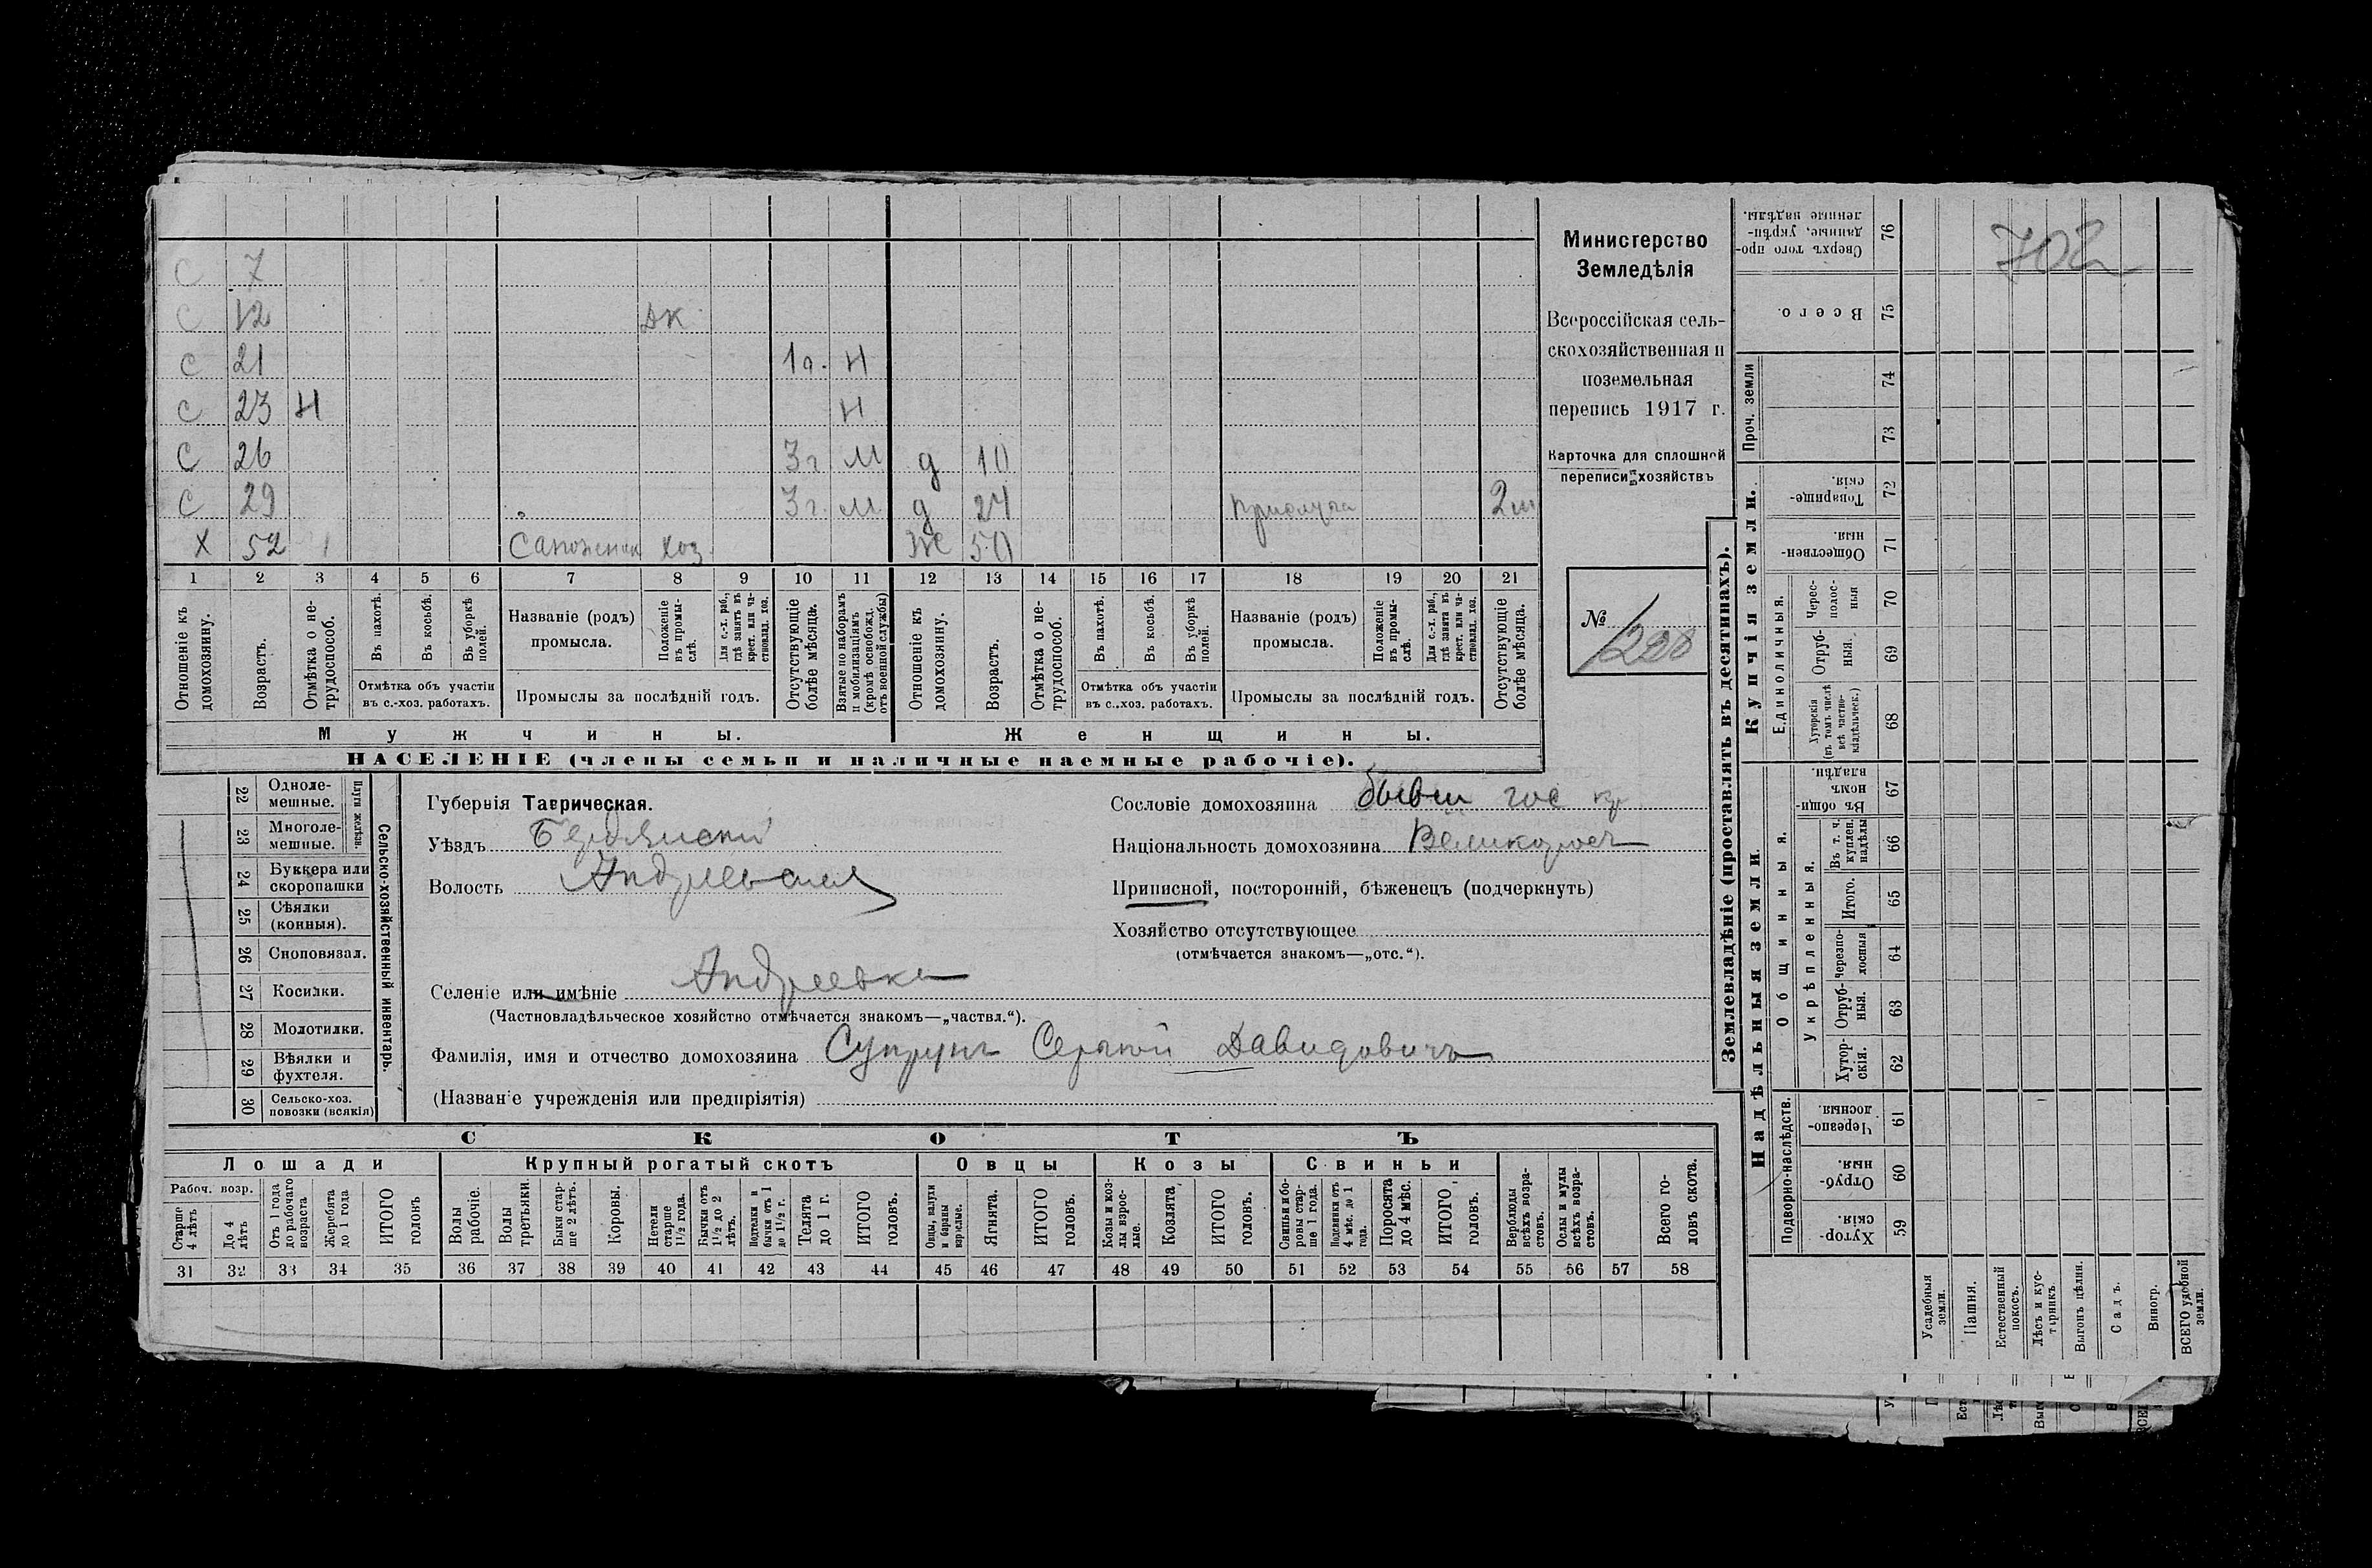 С 7
С 12 дк
С 21 1г. Н
С 23 Н Н
С 26 3г М д 10
С 29 3г. м. д 24 прислуга 2м
Х 52 Сапожник хоз. Ж 50
1 2 3 4 5 6 7 8 9 10 11 12 13 14 15 16 17 18 19 20 21
Отношеніе къ домохозяину.
Возрастъ.
Отмѣтка о не-трудоспособ.
Въ пахотѣ.
Въ косьбѣ.
Въ уборкѣ полей.
Отмѣтка объ участіи въ с.-хоз. работахъ.
Названіе (родъ) промысла.
Положеніе въ промы-слѣ.
Для с.-х. раб., гдѣ занятъ въ крест. или ча-стновлад. хоз.
Промыслы за послѣдній годъ.
Отсутствующіе болѣе мѣсяца.
Взятые по наборамъ и мобилизаціямъ (кромѣ освобожд. отъ военной службы)
Отношеніе къ домохозяину.
Возрастъ.
Отмѣтка о не-трудоспособ.
Въ пахотѣ.
Въ косьбѣ.
Въ уборкѣ полей.
Отмѣтка объ участіи въ с.-хоз. работахъ.
Названіе (родъ) промысла.
Положеніе въ промы-слѣ.
Для с.-х. раб., гдѣ занята въ крест. или ча-стновлад. хоз.
Промыслы за послѣдній годъ.
Отсутствующіе болѣе мѣсяца.
Мужчины.
Женщины.
НАСЕЛЕНІЕ (члены семьи и наличные наемные рабочіе).
Министерство
Земледѣлія
Всероссійская сель-
скохозяйственная и
поземельная
перепись 1917 г.
Карточка для сплошной
переписи хозяйствъ
№ 220
22 Одноле-мешные.
23 Многоле-мешные.
Плуги желѣзн.
24 Буккера или скоропашки
25 Сѣялки (конныя).
26 Сноповязал.
27 Косилки.
28 Молотилки.
29 Вѣялки и фухтеля.
30 Сельско-хоз. повозки (всякія)
Сельско-хозяйственный инвентарь.
Губернія Таврическая.
Уѣздъ Бердянскій
Волость Андреевская
Селеніе или имѣніе Андреевка
(Частновладѣльческое хозяйство отмѣчается знакомъ—„частвл.“).
Фамилія, имя и отчество домохозяина Супрунъ Сергѣй Давидовичъ
(Названіе учрежденія или предпріятія)
Сословіе домохозяина бывш гос кр
Національность домохозяина Великоросъ
Приписной, посторонній, бѣженецъ (подчеркнуть)
Хозяйство отсутствующее
(отмѣчается знакомъ—„отс.“).
СКОТЪ
Лошади
Крупный рогатый скотъ
Овцы
Козы
Свиньи
Рабоч. возр.
Старше 4 лѣтъ
До 4 лѣтъ
Отъ 1 года до рабочаго возраста
Жеребята до 1 года
ИТОГО головъ
Волы рабочіе.
Волы третьяки.
Быки стар-ше 2 лѣтъ.
Коровы.
Нетели старше 1½ года.
Бычки отъ 1½ до 2 лѣтъ.
Подтелки и бычки отъ 1 до 1½ г.
Телята до 1 г.
ИТОГО головъ.
Овцы, валухи и бараны взрослые.
Ягнята.
ИТОГО головъ.
Козы и коз-лы взрос-лые.
Козлята.
ИТОГО головъ.
Свиньи и бо-ровы стар-ше 1 года.
Подсвинки отъ 4 мѣс. до 1 года.
Поросята до 4 мѣс.
ИТОГО головъ.
Верблюды всѣхъ возра-стовъ.
Ослы и мулы всѣхъ возра-стовъ.
Всего го-ловъ скота.
31 32 33 34 35 36 37 38 39 40 41 42 43 44 45 46 47 48 49 50 51 52 53 54 55 56 57 58
702
Землевладѣніе (проставлять въ десятинахъ).
Купчія земли.
Надѣльныя земли.
Сверхъ того про-данные, укрѣп-ленные надѣлы. 76
Всего. 75
Проч. земли
74
73
Товарище-скія. 72
Обществен-ныя. 71
Единоличныя.
Черес-полос-ныя 70
Отруб-ныя. 69
Хуторскія (въ томъ числѣ всѣ частно-владѣльческ.) 68
Общинныя.
Въ общин-номъ владѣн. 67
Укрѣпленныя.
Въ т. ч. куплен. надѣлы 66
Итого. 65
Черезпо-лосныя 64
Отруб-ныя. 63
Хутор-скія. 62
Подворно-наслѣдств.
Черезпо-лосныя. 61
Отруб-ныя. 60
Хутор-скія. 59
Усадебныя земли.
Пашня.
Естественный покосъ.
Лѣсъ и кус-тарникъ.
Выгонъ цѣлин.
Садъ.
Виногр.
ВСЕГО удобной земли.